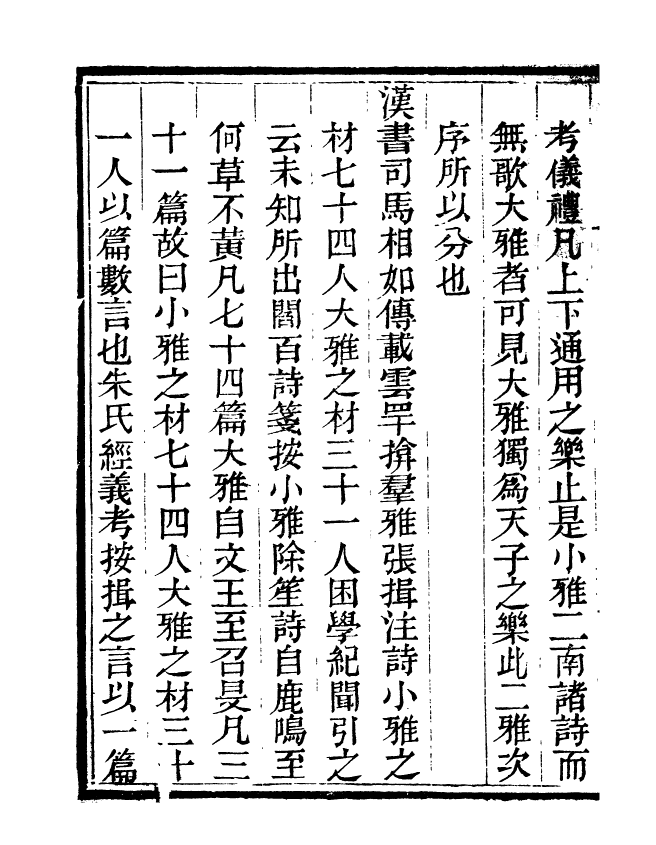 考儀禮凡上下通用之樂止是小雅二南諸詩而
無歌大雅者可見大雅獨爲天子之樂此二雅次
序所以分也
漢書司馬相如傳載雲䍐揜羣雅張揖注詩小雅之
材七十四人大雅之材三十一人困學紀聞引之
云未知所出閻百詩箋按小雅除笙詩自鹿鳴至
何草不黃凡七十四篇大雅自文王至召旻凡三
十一篇故曰小雅之材七十四人大雅之材三十
一人以篇數言也朱氏經義考按揖之言以一篇